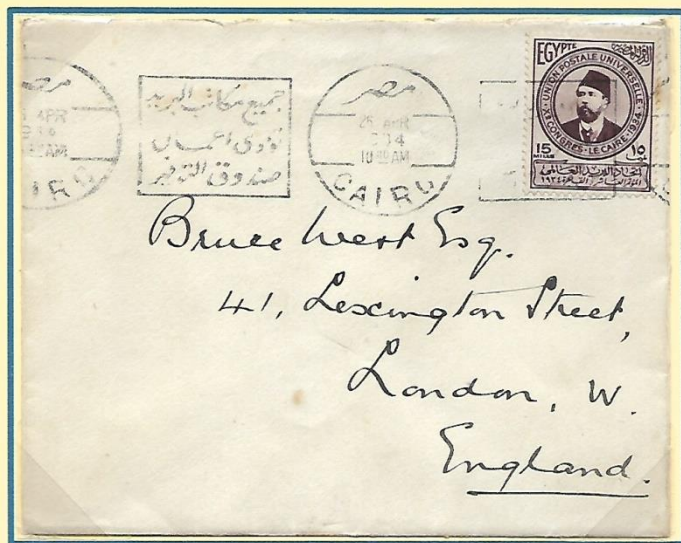 مصر
APR
AM
جميع مكاتب البريد
تؤدى اعمال
صندوق التوفير
مصر
APR
AM
CAIRO
EGYPTE
UNION POSTALE UNIVERSELLE
CONGRES - LE CAIRE - 1934
15
MILLS
١٥
Bruce West Esq.
41, Lexington Street,
London, W.
England.